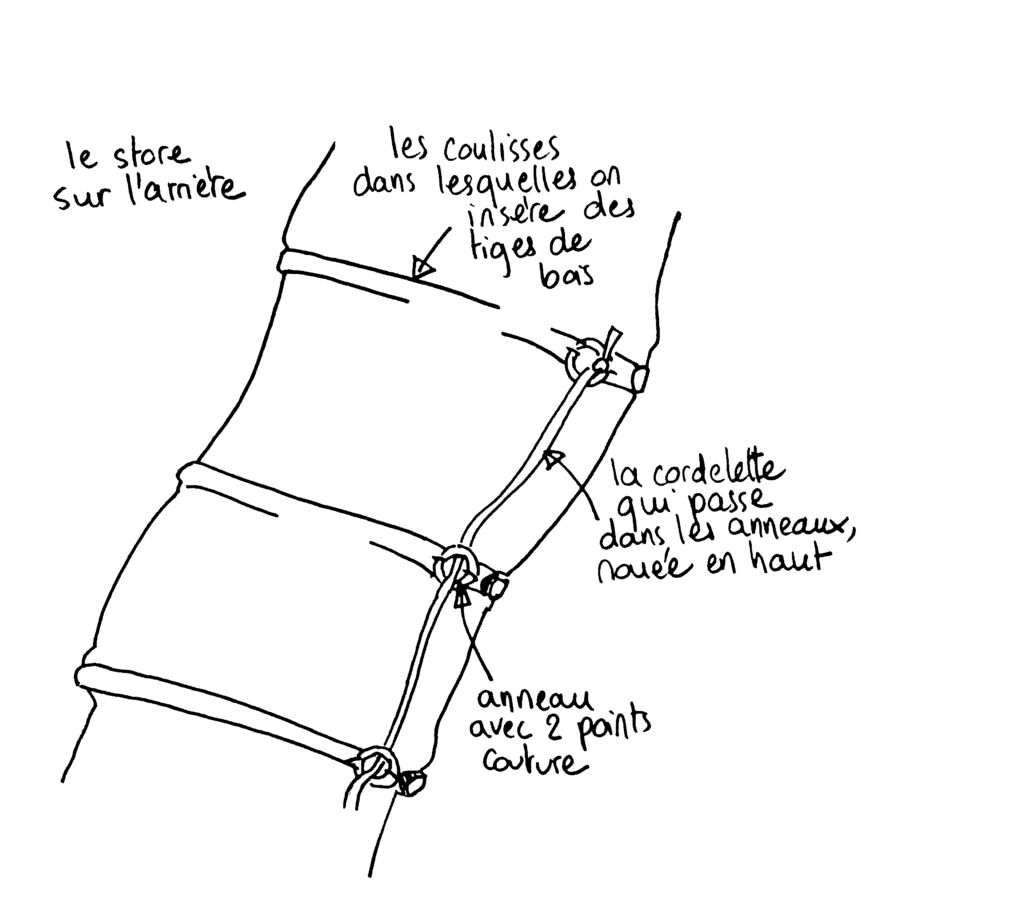 le store
sur l'arrière
les coulisses
dans lesquelles on
insère des
tiges de
bois
la cordelette
qui passe
dans les anneaux,
nouée en haut
anneau
avec 2 points
couture